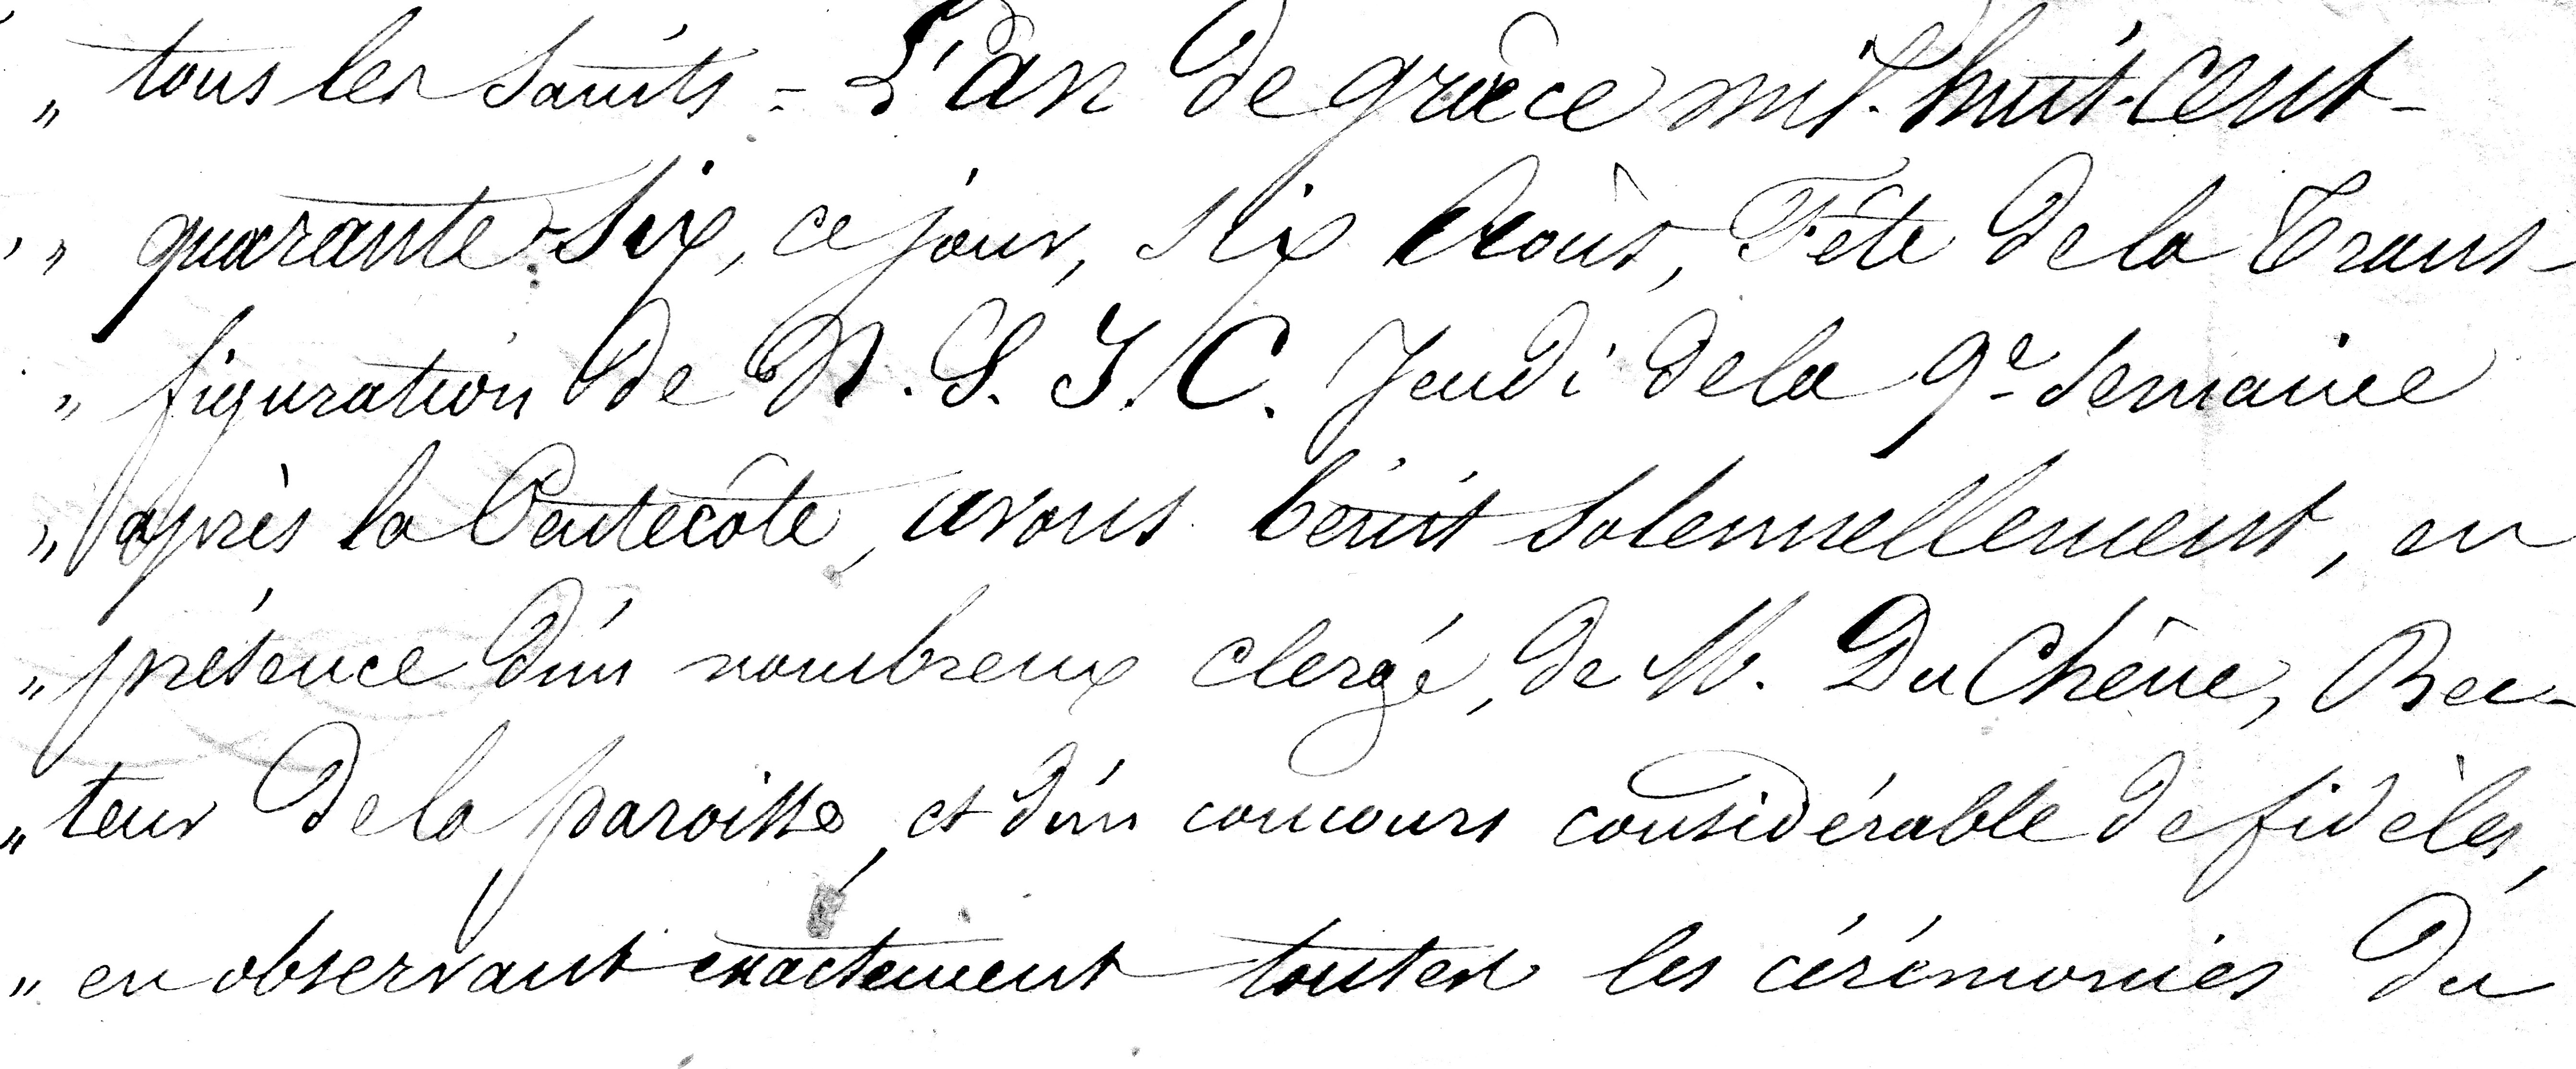 „ tous les saints = L'an de grâce mil-huit-cent-
„ quarante-six, ce jour, six Août, Fête de la Trans-
„ figuration de N. S. J. C. Jeudi de la 9e semaine
„ après la Pentecôte, avons bénit solennellement, en
„ présence d'un nombreux clergé, de M. DuChêne, Rec-
„ teur de la paroisse, et d'un concours considérable de fidèles,
„ en observant exactement toutes les cérémonies du